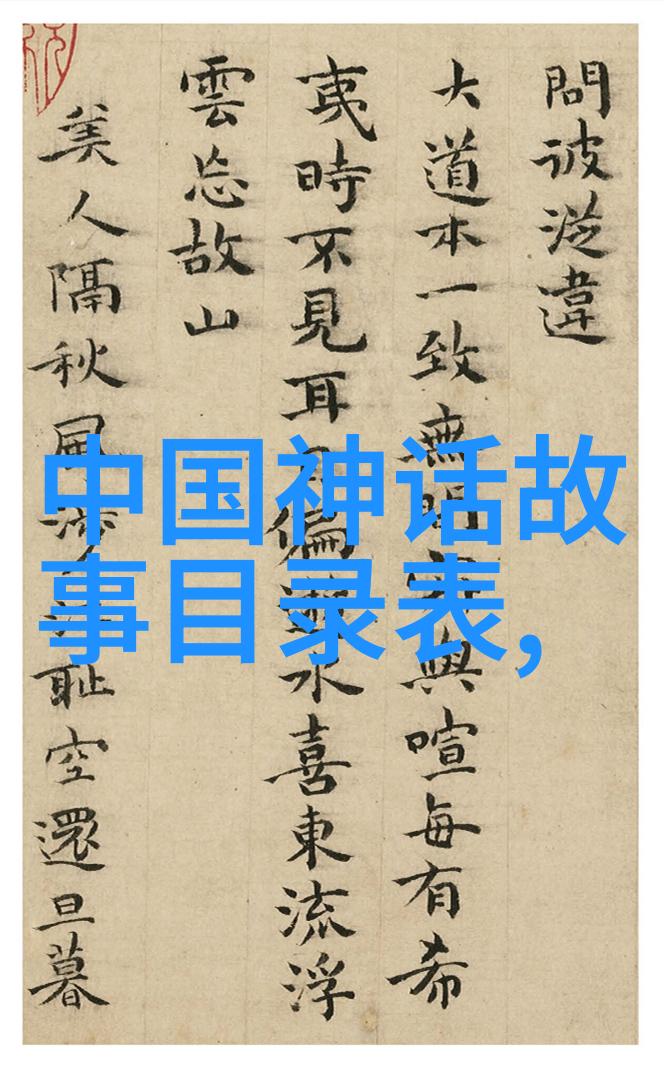 問彼違
大道本一致無與喧每有希
夷時不見耳偏水喜東流浮
雲忘故山
美人隔秋風耻空還旦暮
中国神话故
事目录表,